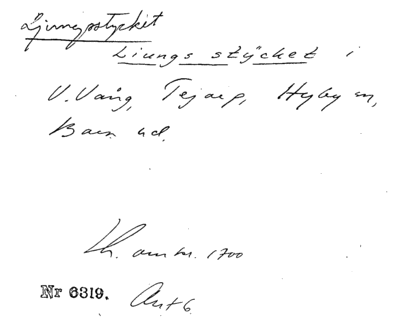 Ljungstycket
Liungs stÿcket i
V. Vång, Tejarp, Hyby sn,
Bara hd.
Kh. omkr. 1700
Nr 6319. Akt 6.